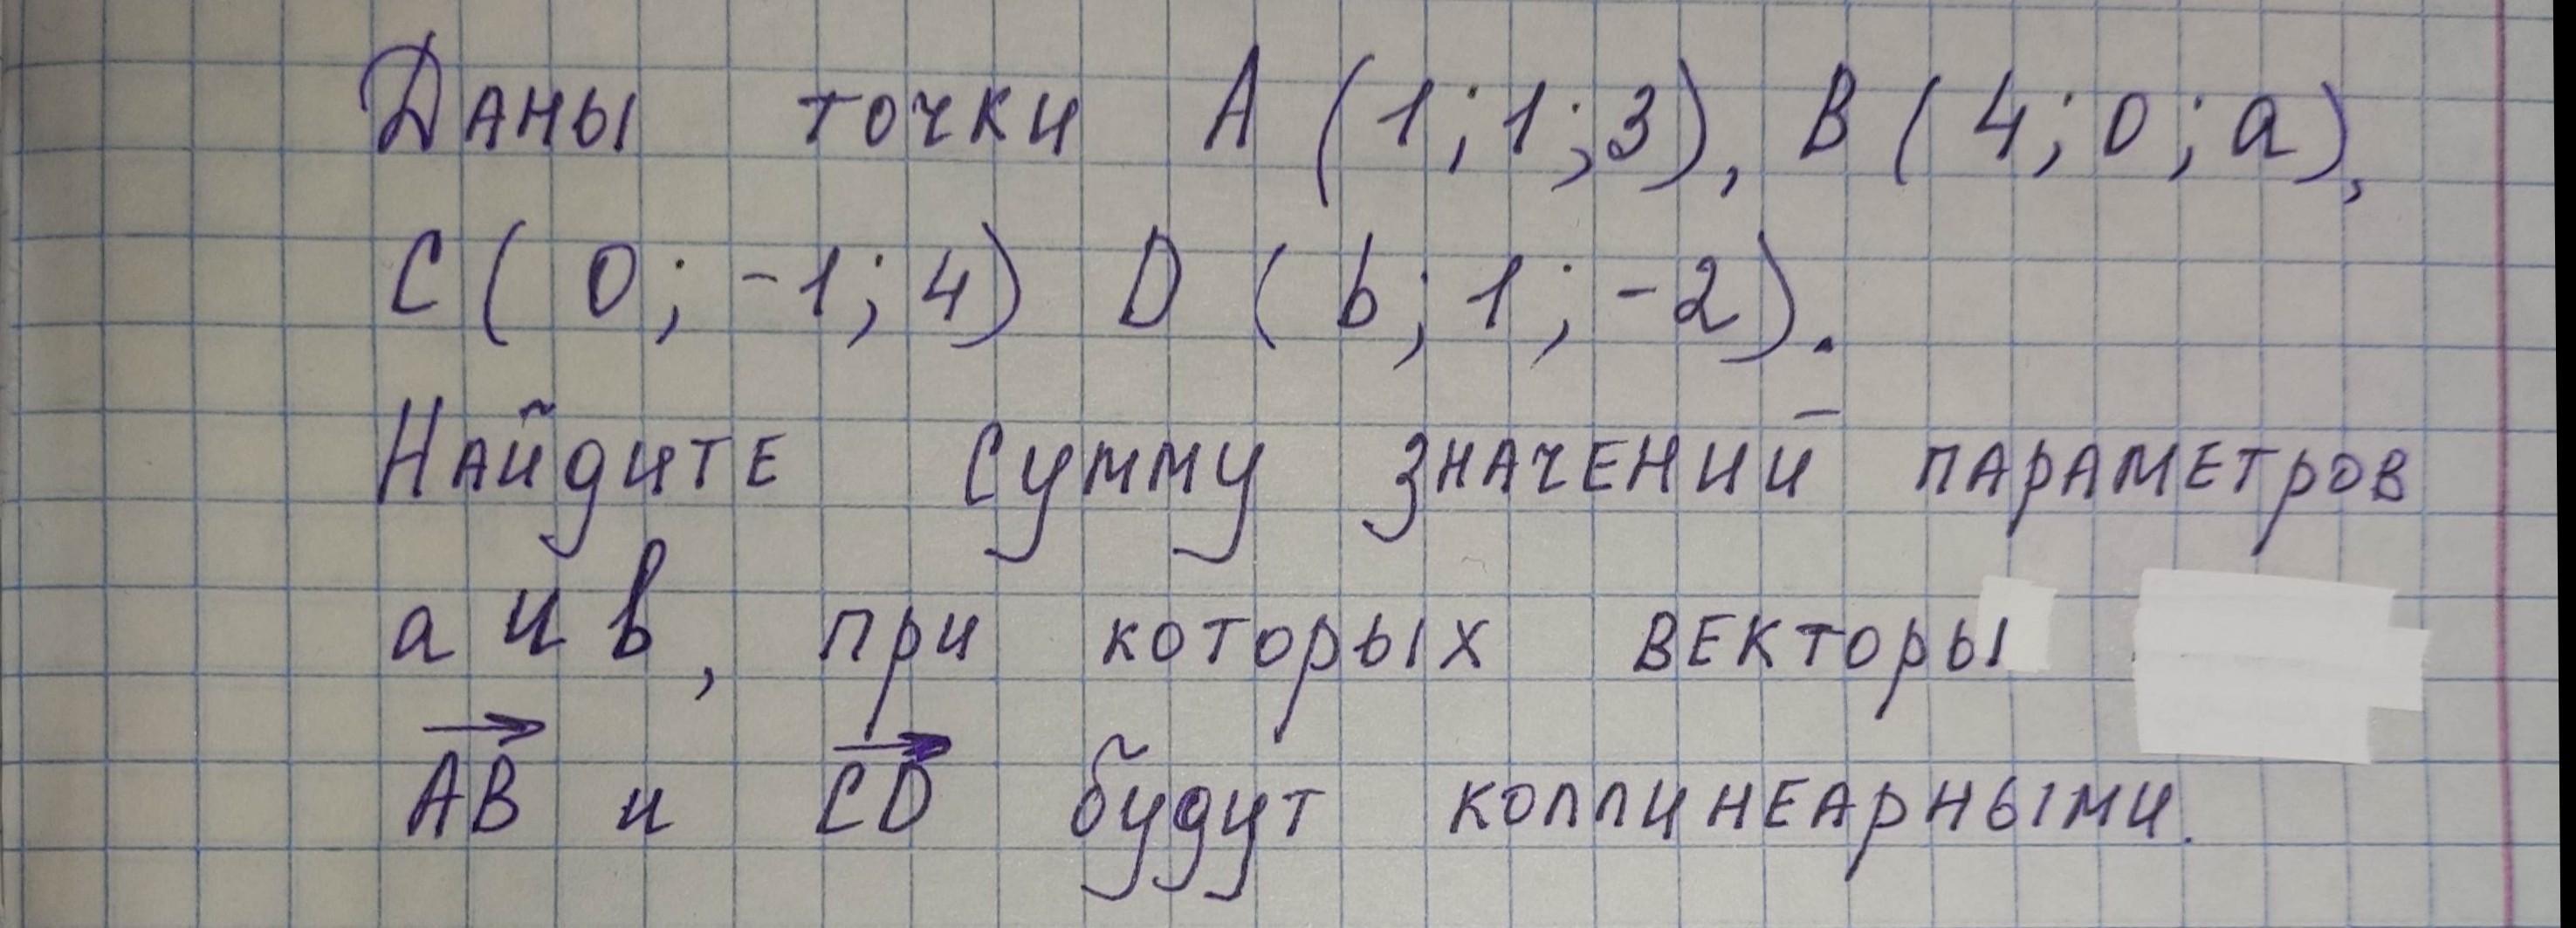 Даны точки A (1; 1; 3), B (4; 0; a),
C (0; -1; 4) D (b; 1; -2).
Найдите сумму значений параметров
a и b, при которых векторы
AB и CD будут коллинеарными.